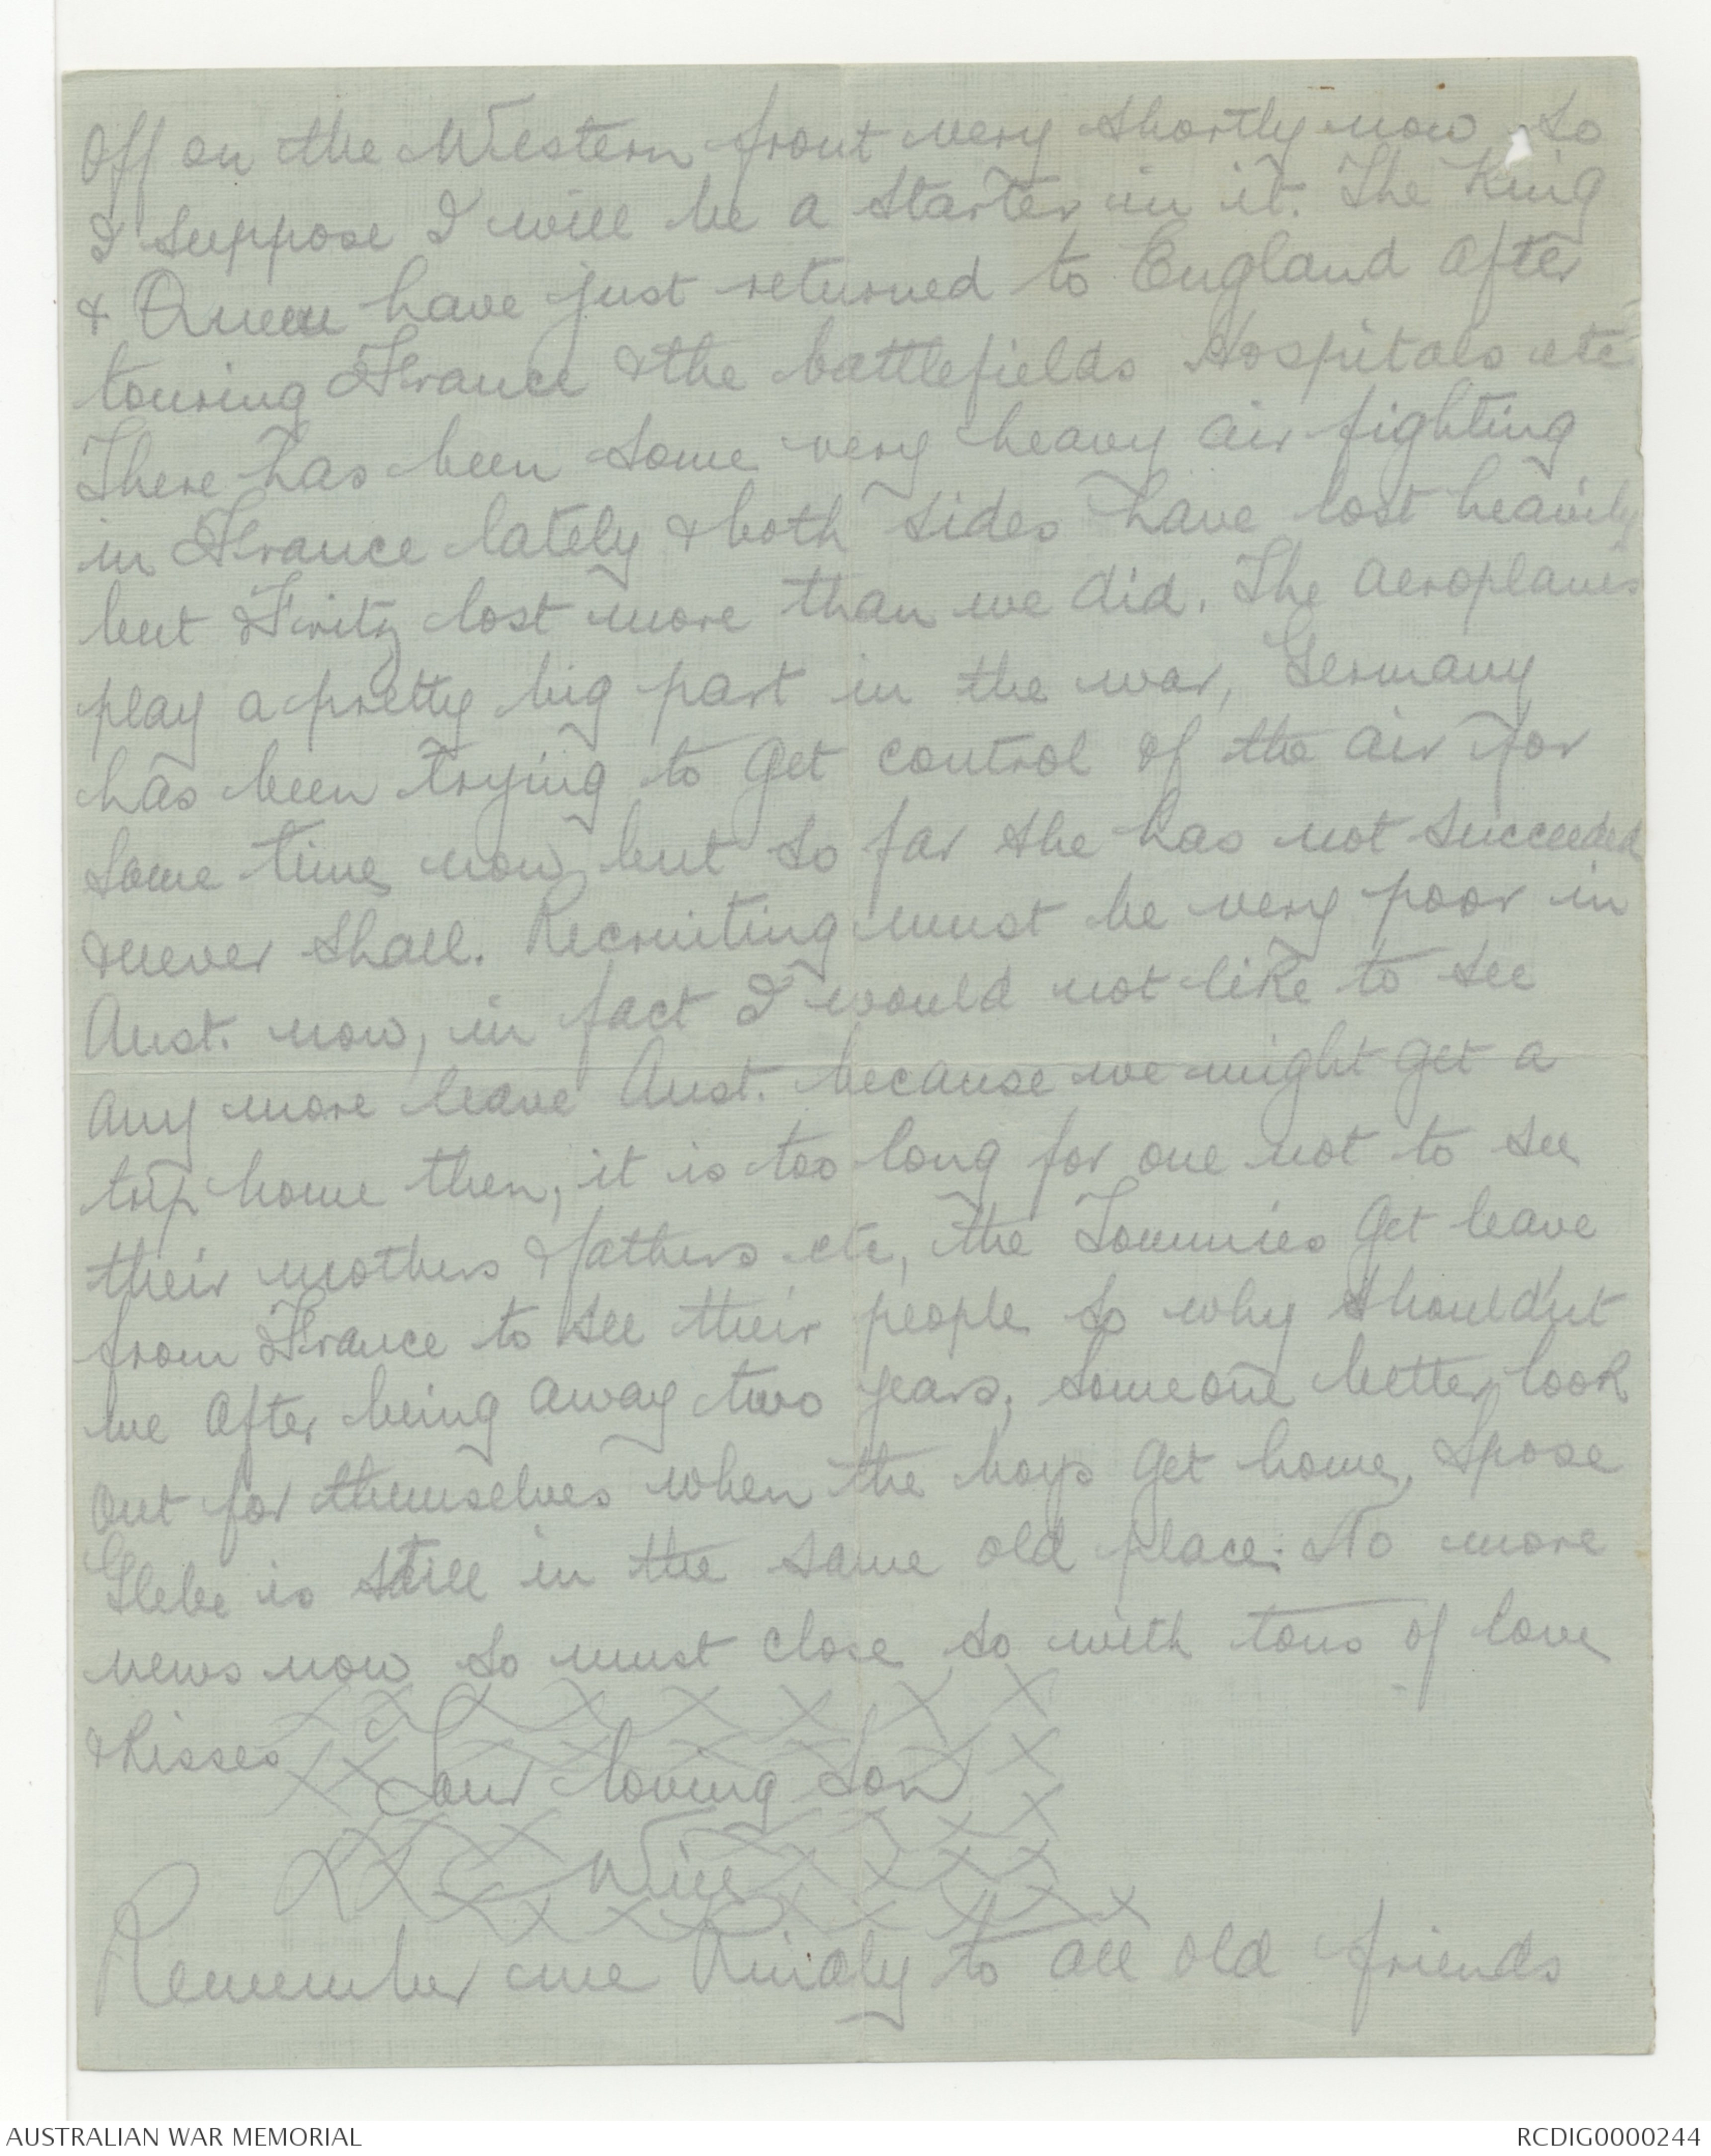 Off on the Western front very shortly now so
I suppose I will be a starter in it. The King
& Queen have just returned to England after
touring France & the battlefields Hospitals etc
There has been some very heavy air fighting
in France lately & both sides have lost heavily
but Fritz lost more than we did. The aeroplanes
play a pretty big part in the war, Germany
has been trying to get control of the air for
some time now but so far she has not succeeded
& never shall. Recruiting must be very poor in
Aust. now, in fact I would not like to see
any more leave Aust. because we might get a
trip home then, it is too long for one not to see
their mothers & fathers etc, the Tommies get leave
from France to see their people so why should'nt
we after being away two years, someone better look
out for themselves when the boys get home, Spose
Glebe is still in the same old place. No more
news now so must close so with tons of love
& Kisses
Your loving Son
Will
Remember me Kindly to all old friends
AUSTRALIAN WAR MEMORIAL
RCDIG0000244